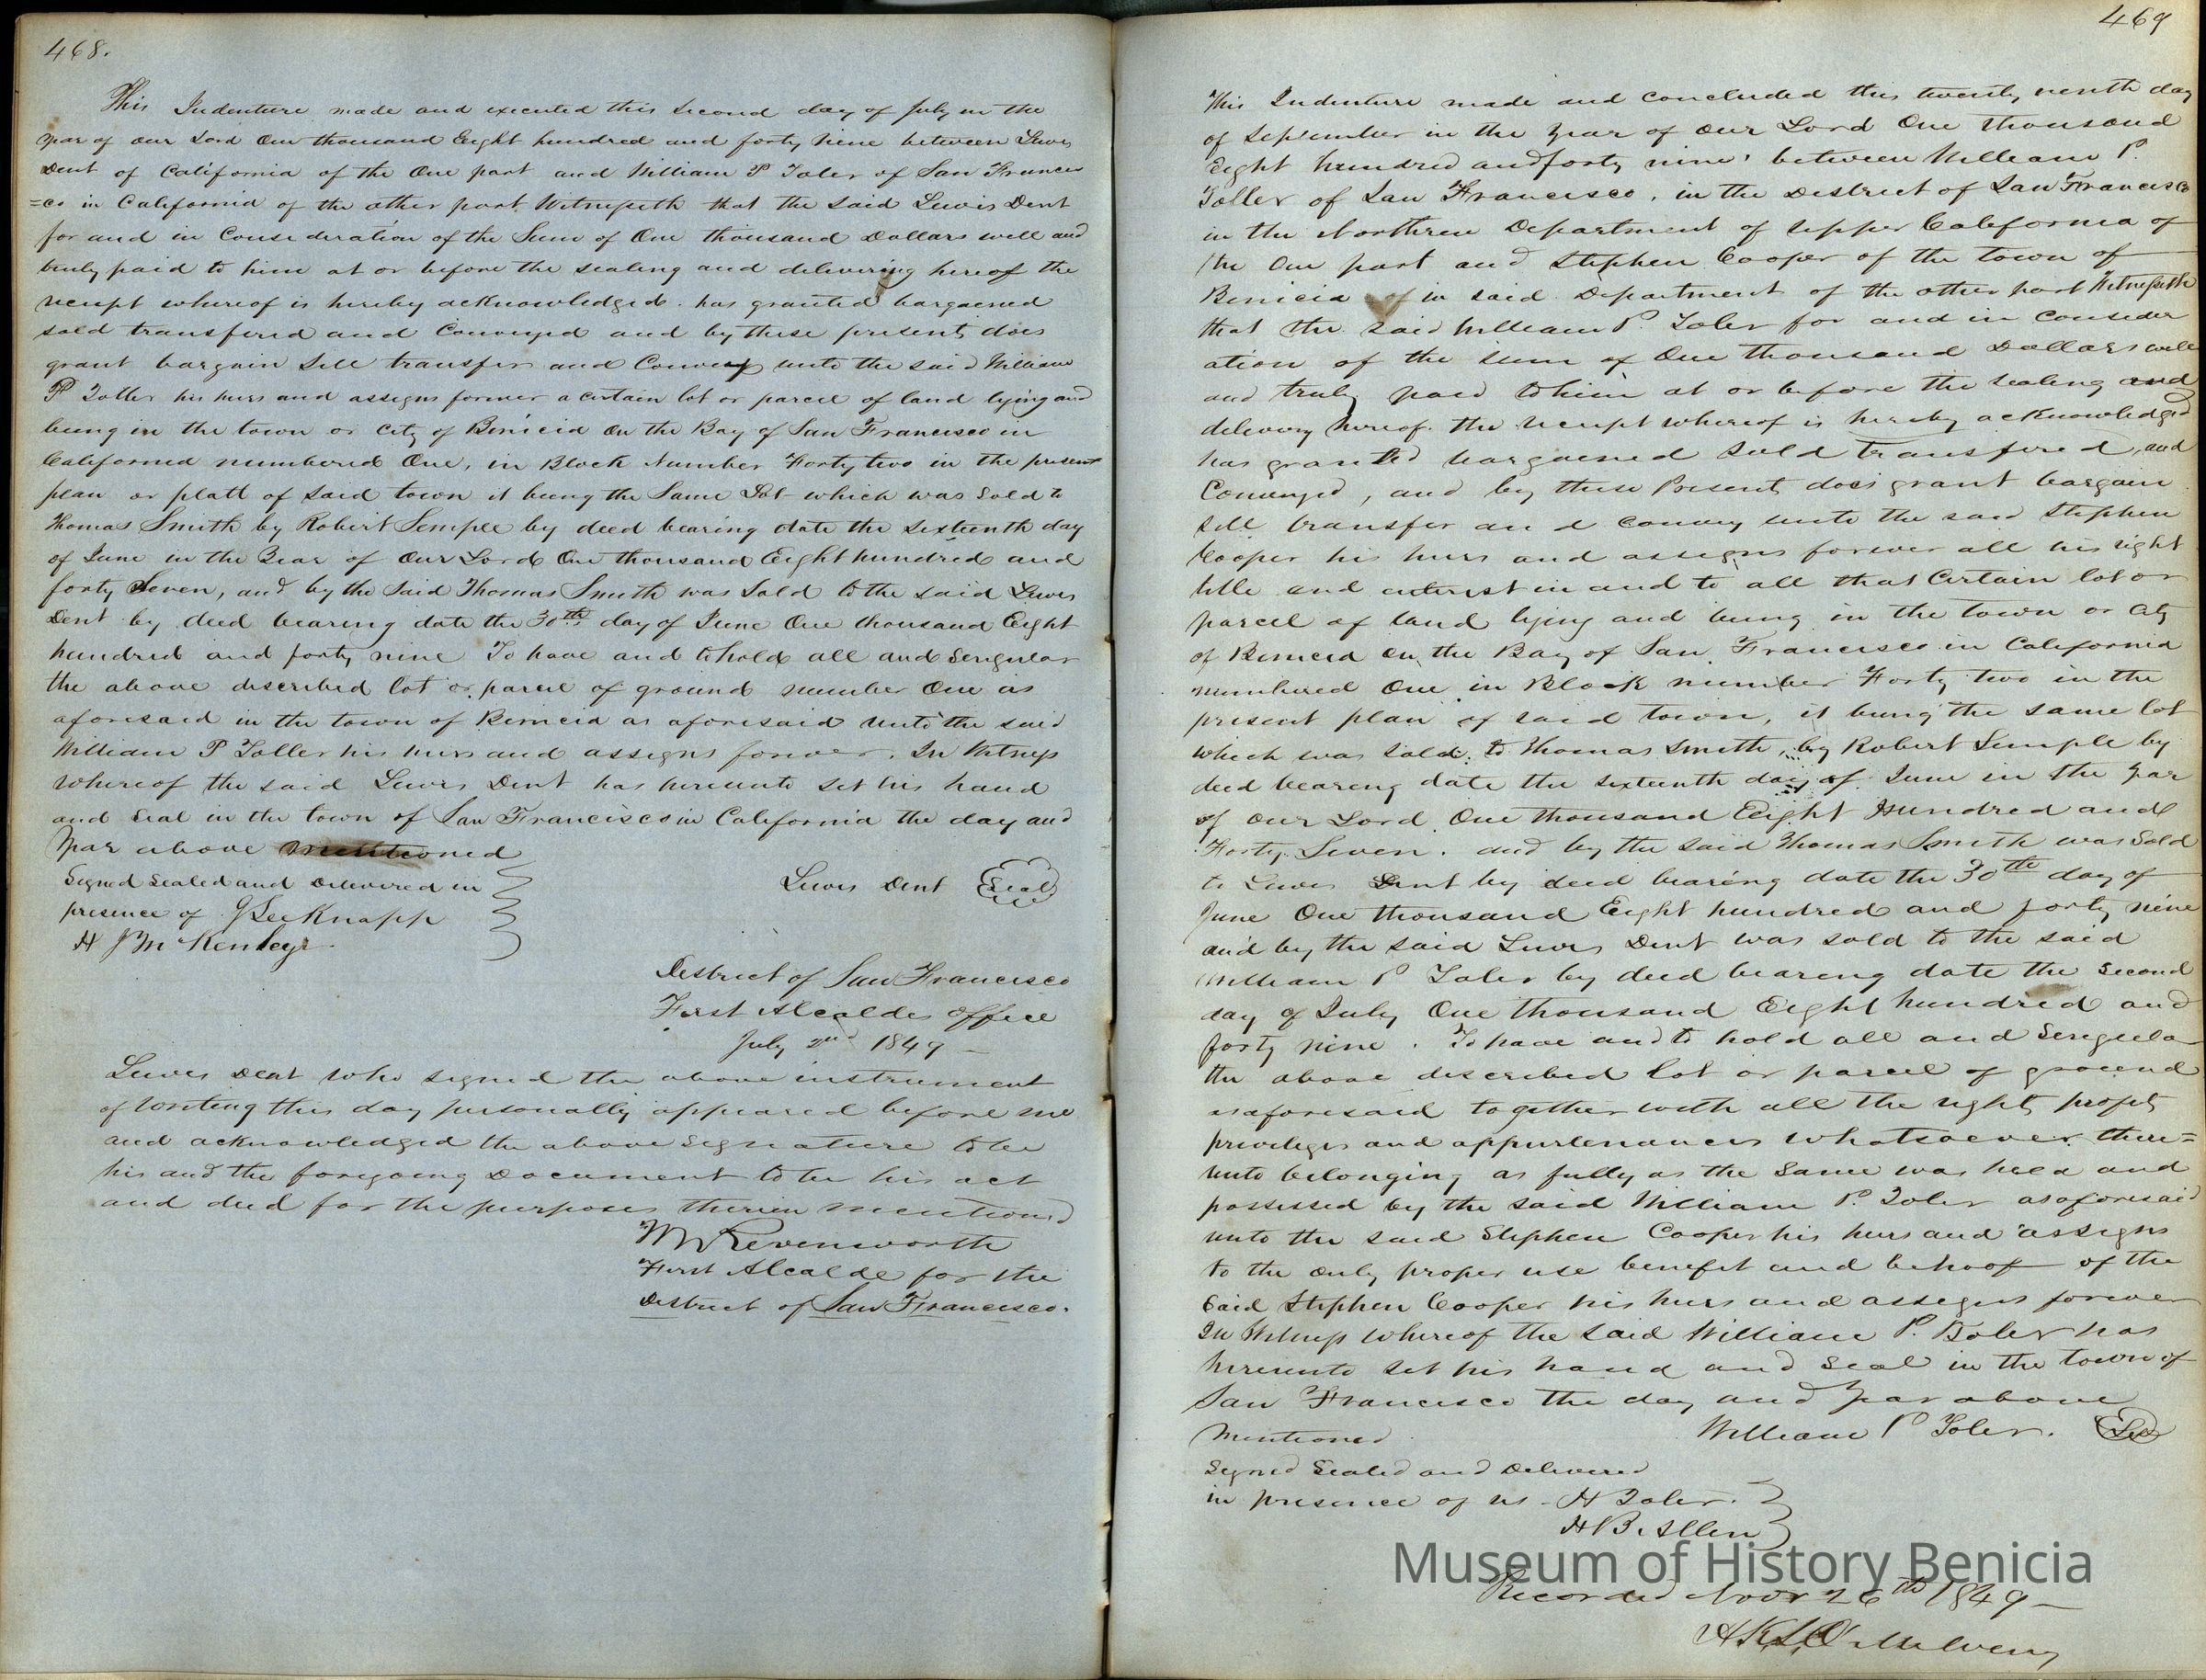 468.
This Indenture made and executed this second day of July in the
year of our Lord One thousand Eight hundred and forty nine between Lewis
Dent of California of the One part and William P Toler of San Francis
=co in California of the other part. Witnesseth that the said Lewis Dent
for and in Consideration of the Sum of One thousand Dollars well and
truly paid to him at or before the sealing and delivering hereof the
receipt whereof is hereby acknowledged. has granted bargained
sold transfered and Conveyed and by these presents does
grant bargain Sell transfer and Convey unto the said William
P Toller his heirs and assigns forever a certain lot or parcel of land lying and
being in the town or City of Benicia on the Bay of San Francisco in
California numbered One, in Block Number Forty two in the present
plan or platt of said town it being the Same Lot which was Sold to
Thomas Smith by Robert Semple by deed bearing date the sixteenth day
of June in the Year of Our Lord One thousand Eight hundred and
forty Seven, and by the Said Thomas Smith was Sold to the said Lewis
Dent by deed bearing date the 30th day of June One thousand Eight
hundred and forty nine To have and to hold all and Singular
the above described lot or parcel of ground number One as
aforesaid in the town of Benicia as aforesaid unto the said
William P Toller his heirs and assigns forever. In Witness
whereof the said Lewis Dent has hereunto Set his hand
and Seal in the town of San Francisco in California the day and
year above mentioned
Signed Sealed and Delivered in
presence of J Lee Knapp
H J McKenley
Lewis Dent Seal
District of San Francisco
First Alcaldes Office
July 2nd 1849 —
Lewis Dent who signed the above instrument
of writing this day personally appeared before me
and acknowledged the above Signature to be
his and the foregoing Document to be his act
and deed for the purposes therein mentioned
Levenworth
First Alcalde for the
District of San Francisco.
469
This Indenture made and concluded this twenty ninth day
of September in the Year of Our Lord One thousand
Eight hundred and forty nine, between William P.
Toller of San Francisco, in the District of San Francisco
in the Northren Department of Upper California of
the One part and Stephen Cooper of the town of
Benicia in said Department of the other part Witnesseth
that the said William P. Toler for and in Consider
ation of the sum of One thousand Dollars well
and truly paid to him at or before the sealing and
delivery hereof the receipt whereof is hereby acknowledged
has granted bargained Sold transfered, and
Conveyed, and by these Presents does grant bargain
sell transfer and convey unto the said Stephen
Cooper his heirs and assigns forever all his right
title and interest in and to all that Certain lot or
parcel of land lying and being in the town or City
of Benicia on the Bay of San Francisco in California
numbered One in Block number Forty two in the
present plan of said town, it being the same lot
which was Sold to Thomas Smith, by Robert Semple by
deed bearing date the sixteenth day of June in the Year
of Our Lord One thousand Eight Hundred and
Forty Seven. and by the Said Thomas Smith was Sold
to Lewis Dent by deed bearing date the 30th day of
June One thousand Eight hundred and forty nine
and by the said Lewis Dent was sold to the said
William P Toler by deed bearing date the Second
day of July One thousand Eight hundred and
forty nine. To have and to hold all and Singular
the above described lot or parcel of ground
as aforesaid together with all the rights profits
priviliges and appurtenances whatsoever there=
unto belonging as fully as the Same was held and
possessed by the said William P. Toler as aforesaid
unto the said Stephen Cooper his heirs and assigns
to the only proper use benefit and behoof of the
Said Stephen Cooper his heirs and assigns forever
In Witness whereof the said William P. Toler has
hereunto set his hand and Seal in the town of
San Francisco the day and Year above
Mentioned
William P Toler.
Signed Sealed and Delivered
in presence of us - H Toler.
H B. Allen
Museum of History Benicia
Recorded Novr 26th 1849 —